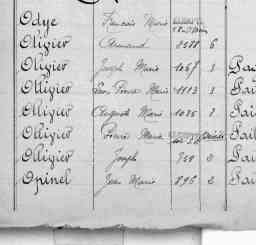 Odye François Marie
Oligier Armand 2588 6
Olligier Joseph Marie 1067 3 Pai
Olligier Jean Pierre Marie 1113 3 Pai
Olligier Auguste Marie 1036 3 Pai
Olligier Pierre Marie Pai
Olligier Joseph 759 3 Pai
Opinel Jean Marie 895 2 Pai